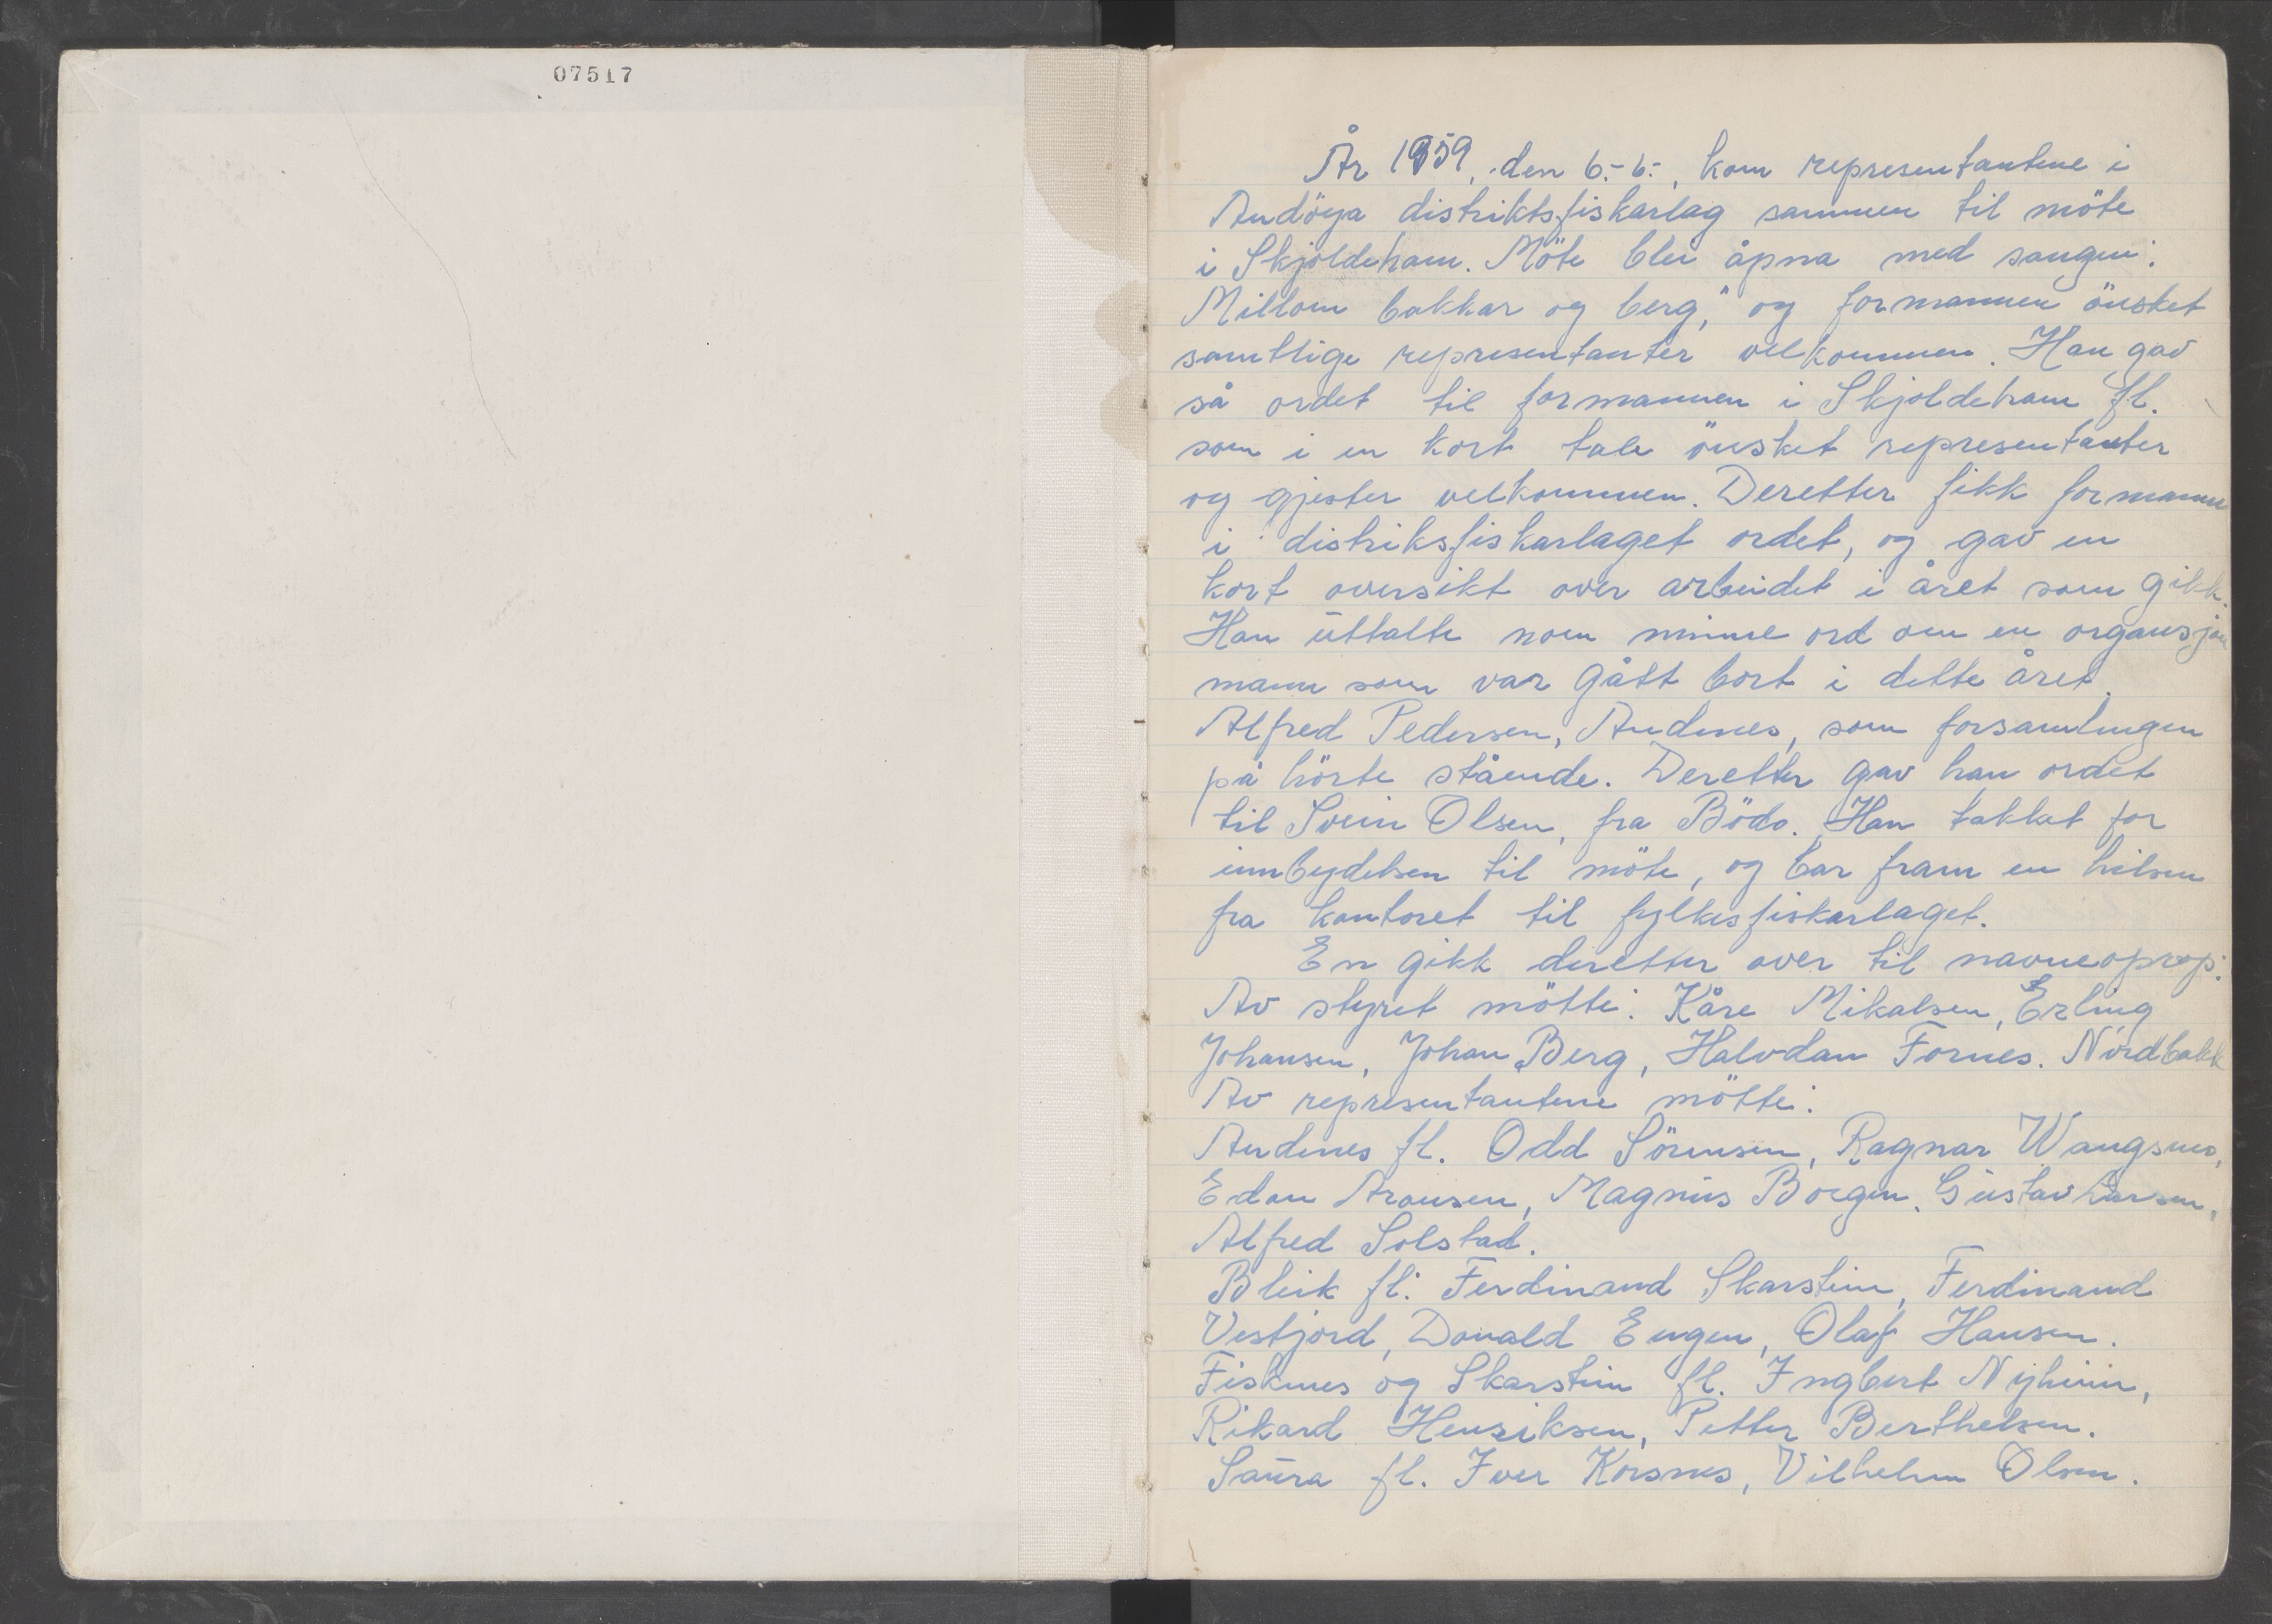 07517
År 1959, den 6.-6-, kom representantene i
Andöya distriktsfiskarlag sammen til möte
i Skjoldeham. Möte blei åpna med sangen:
Millom bakkar og berg," og formannen önsket
samtlige representanter velkommen. Han gav
så ordet til formannen i Skjoldeham fl.
som i en kort tale önsket representanter
og gjester velkommen. Deretter fikk formannen
i distriksfiskarlaget ordet, og gav en
kort oversikt over arbeidet i året som gikk.
Han uttalte noen minne ord om en organsjon
mann som var gått bort i dette året.
Alfred Pedersen, Andenes, som forsamlingen
på hörte stående. Deretter gav han ordet
til Svein Olsen, fra Bödo. Han takket for
innbydelsen til möte, og bar fram en hilsen
fra kontoret til fylkesfiskarlaget.
En gikk deretter over til navneoprop:
Av styret mötte: Kåre Mikalsen, Erling
Johansen, Johan Berg, Halvdan Fornes. Nordbakk
Av representantene mötte:
Andenes fl. Odd Sörensen, Ragnar Wangsmo,
Edon Aronsen, Magnus Borgen, Gustav Larsen,
Alfred Solstad.
Bleik fl: Ferdinand Skarstein, Ferdinand
Vestjord, Donald Eugen, Olaf Hansen.
Fiskenes og Skarstein fl. Ingbert Nyheim,
Rikard Henriksen, Petter Berthelsen.
Saura fl. Iver Korsnes, Vilhelm Olsen.